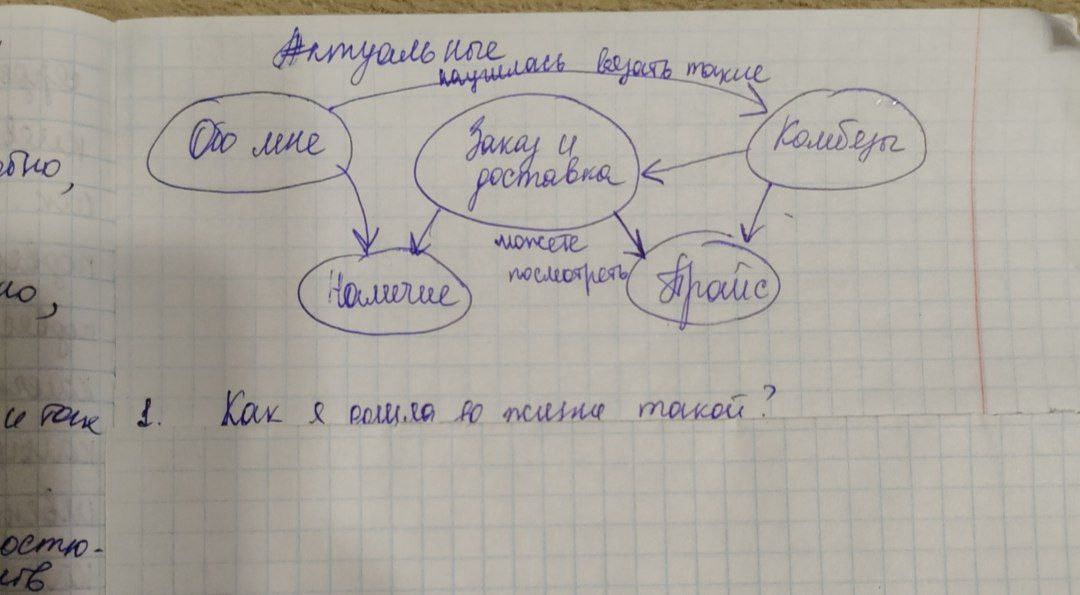 Актуальные
научилась вязать такие
Обо мне
Заказ и
доставка
Комбезы
можете
посмотреть
Наличие
Прайс
1. Как я дошла до жизни такой?
но,
и так
остю-